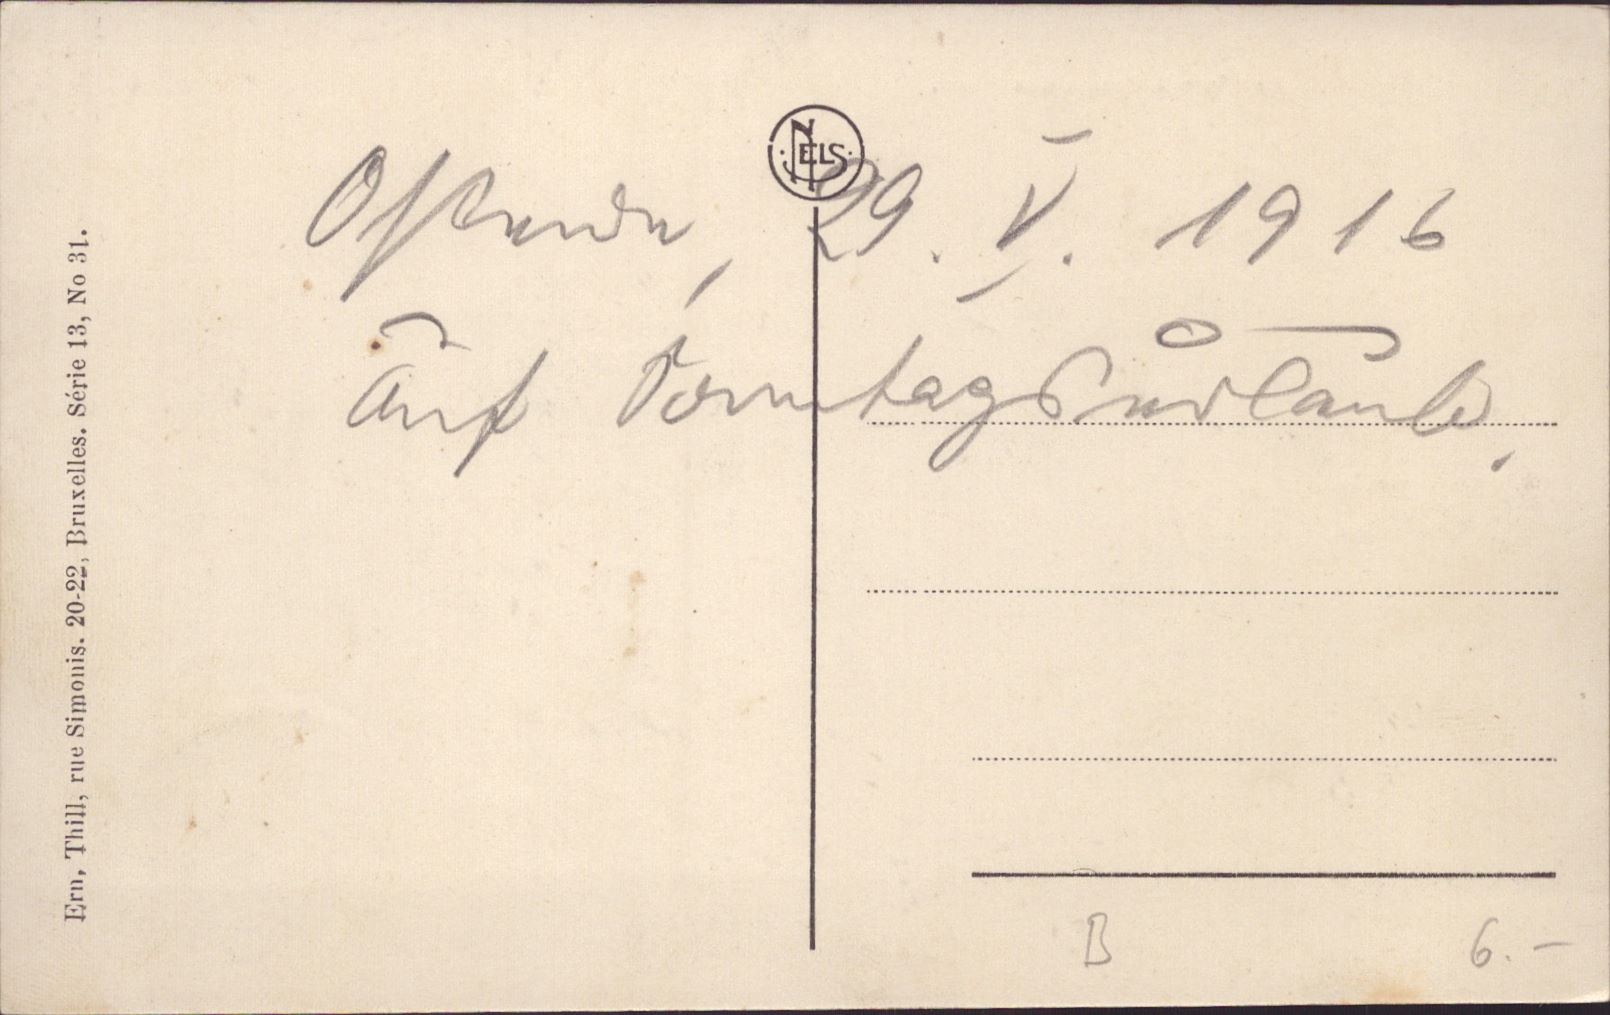 Ern. Thill, rue Simonis. 20-22, Bruxelles. Série 13, No 31.
NELS
Ostende, 29. V. 1916
Auf Sonntagsurlaub.
B 6.-